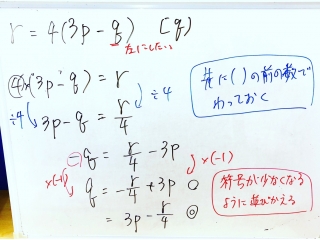 r = 4(3p - q) [q]
左にしたい
④×(3p - q) = r
÷4 3p - q = r/4 ÷4
先に( )の前の数で
わっておく
⊖q = r/4 - 3p
×(-1) q = -r/4 + 3p ○ ×(-1)
= 3p - r/4 ◎
符号が少なくなる
ように並びかえる